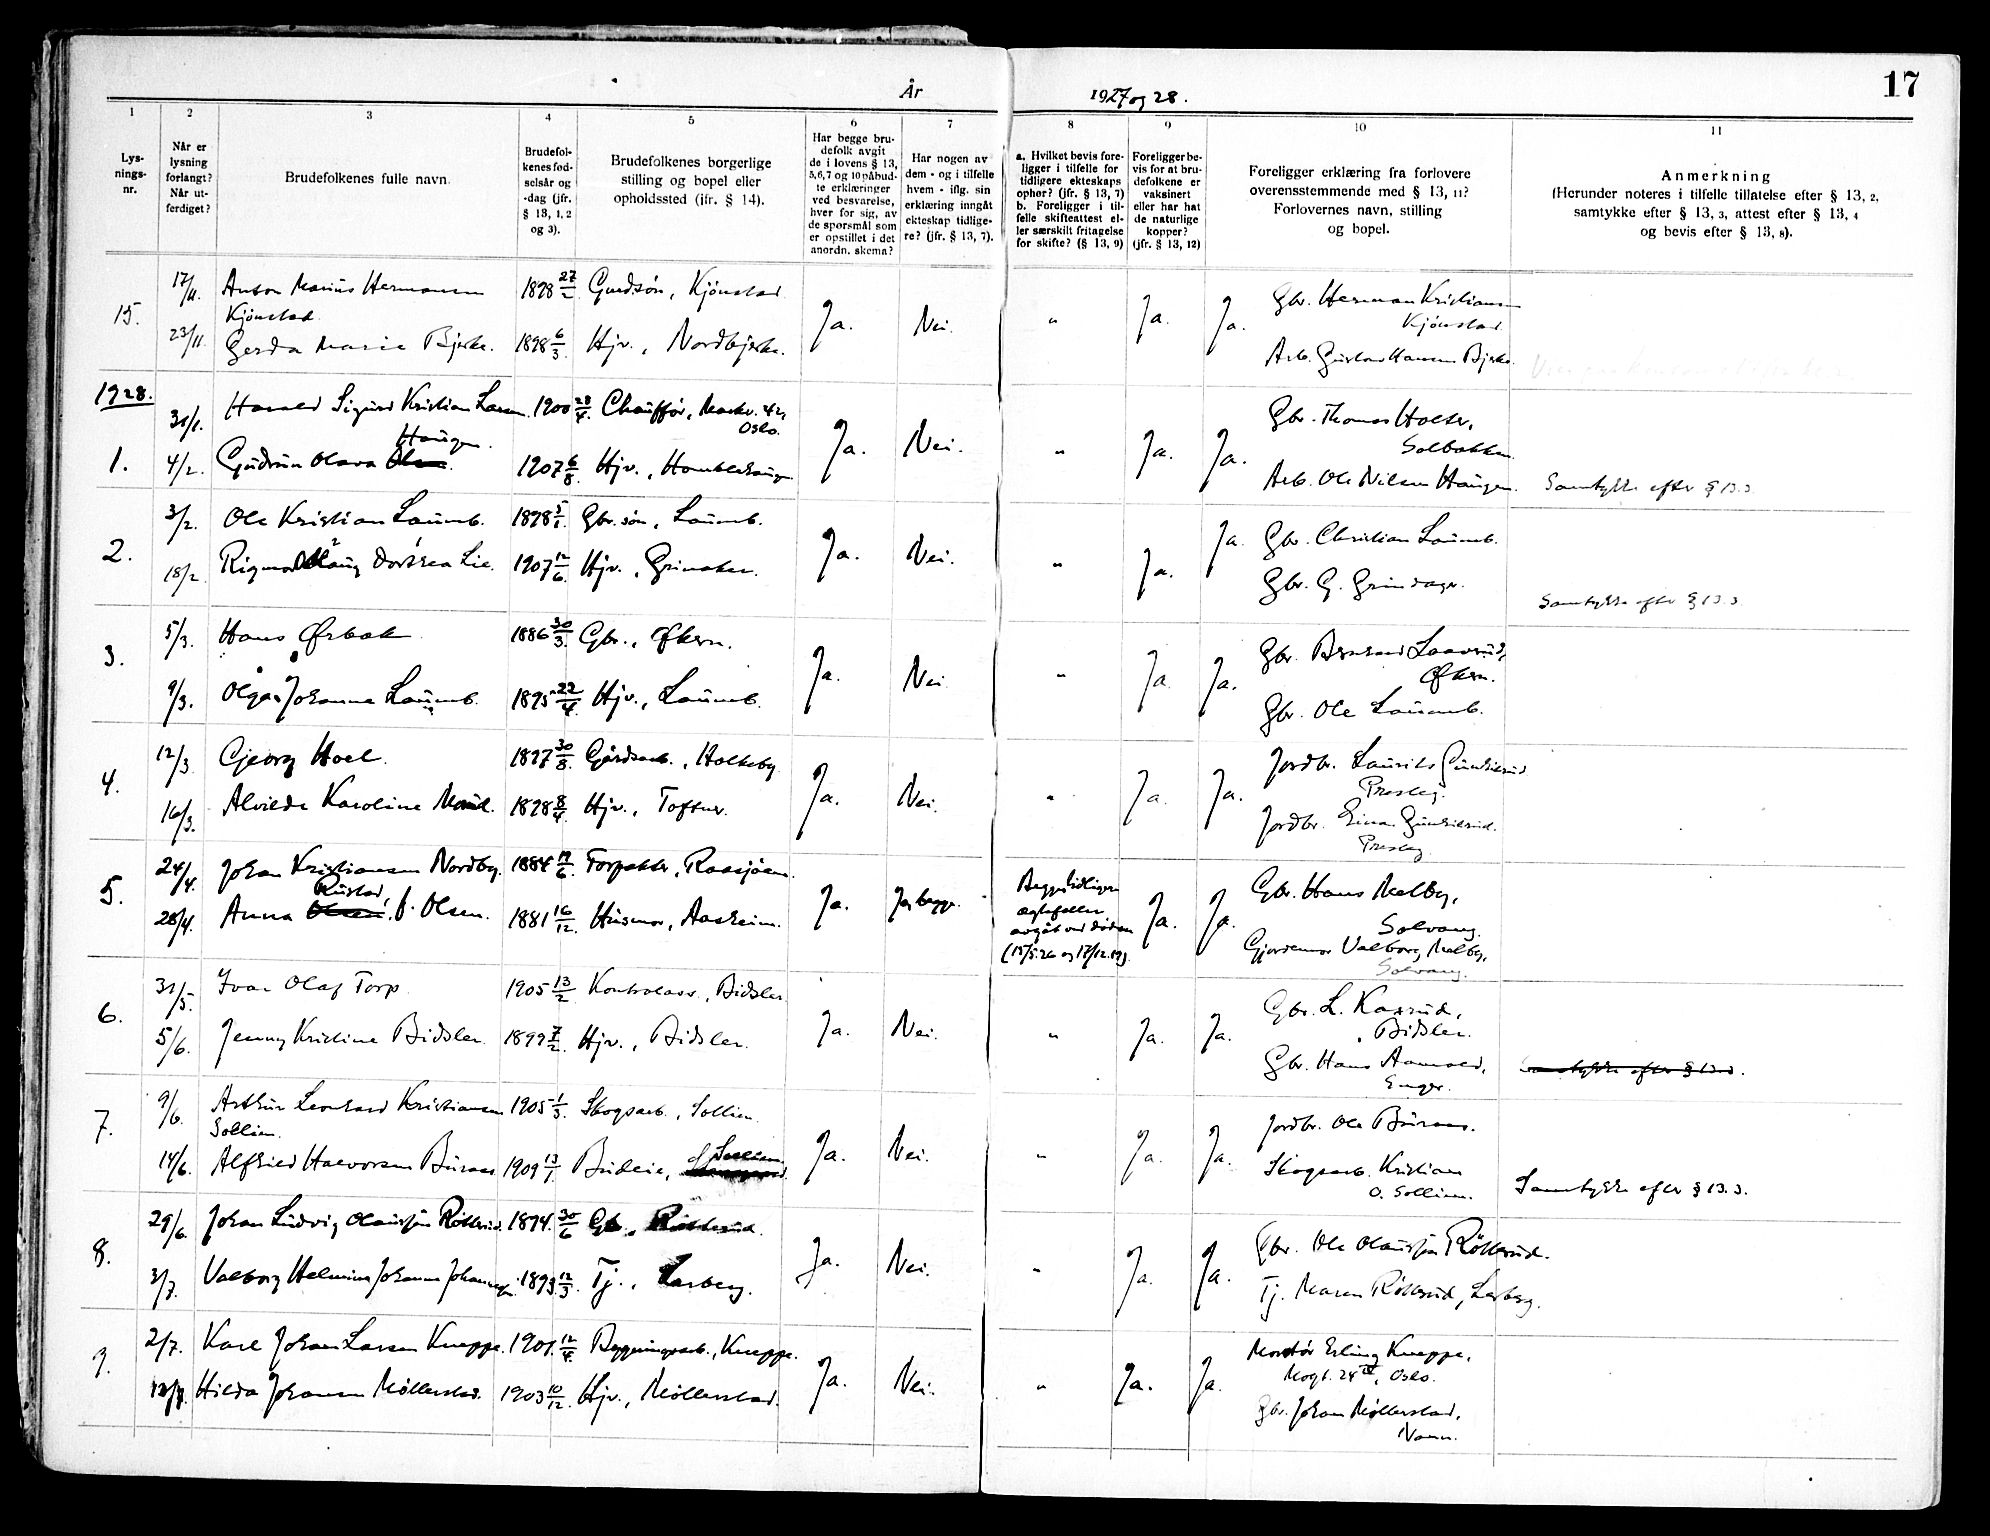 17
År 1927 og 28.
1 2 3 4 5 6 7 8 9 10 11
Lys-
nings-
nr.
Når er
lysning
forlangt?
Når ut-
ferdiget?
Brudefolkenes fulle navn.
Brudefol-
kenes fød-
selsår og
-dag (jfr.
§ 13, 1, 2
og 3).
Brudefolkenes borgerlige
stilling og bopel eller
opholdssted (jfr. § 14).
Har begge bru-
defolk avgit
de i lovens § 13,
5,6,7 og 10 påbud-
te erklæringer
ved besvarelse,
hver for sig, av
de spørsmål som
er opstillet i det
anordn. skema?
Har nogen av
dem - og i tilfelle
hvem - iflg. sin
erklæring inngåt
ekteskap tidlige-
re? (jfr. § 13, 7).
a. Hvilket bevis fore-
ligger i tilfelle for
tidligere ekteskaps
ophør? (jfr. § 13, 7)
b. Foreligger i til-
felle skifteattest el-
ler særskilt fritagelse
for skifte? (§ 13, 9)
Foreligger be-
vis for at bru-
defolkene er
vaksinert
eller har hat
de naturlige
kopper?
(jfr. § 13, 12)
Foreligger erklæring fra forlovere
overensstemmende med § 13, 11?
Forlovernes navn, stilling
og bopel.
Anmerkning
(Herunder noteres i tilfelle tillatelse efter § 13, 2,
samtykke efter § 13, 3, attest efter § 13, 4
og bevis efter § 13, 8).
15. 17/11. Anton Marius Hermansen 1898 27/2 Gaardsøn, Kjönstad.
Kjönstad.
23/11 Gerda Marie Bjerke. 1898 6/3. Hjv., Nordbjerke.
Ja. Nei. " Ja. Ja. Gbr. Herman Kristiansen
Kjönstad
Arb. Gustav Hansen Bjerke.
1928.
1. 31/1. Harald Sigurd Kristian Larsen. 1900 28/4. Chauffør, Markv. 42,
Oslo.
Haugen.
4/2. Gudrun Olava Olsen. 1907 6/8. Hjv., Homblehaugen
Ja. Nei. " Ja. Ja. Gbr. Thomas Holter,
Solbakken
Arb. Ole Nilsen Haugen. Samtykke efter § 13.3.
2. 3/2. Ole Kristian Laumb. 1898 5/1. Gbr.søn, Laumb.
18/2 Rigmor Haug Dorthea Lie. 1907 12/6. Hjv., Grinaker.
Ja. Nei. " Ja. Ja. Gbr. Christian Laumb.
Gbr. G. Grindager. Samtykke efter § 13.3
3. 5/3. Hans Ørbak 1886 30/3. Gbr., Økern.
9/3. Olga Johanna Laumb. 1895 22/4. Hjv., Laumb.
Ja. Nei. " Ja. Ja. Gbr. Bernhard Laavrud,
Økern.
Gbr. Ole Laumb.
4. 12/3. Georg Hoel. 1897 30/8. Gårdsarb., Holteby
16/3. Alvilde Karoline Moud. 1898 8/4. Hjv., Toftner.
Ja. Nei. " Ja. Ja. Jordbr. Laurits Gundersrud
Presteg.
Jordbr. Einar Gundersrud.
Presteg.
5. 24/4. Johan Kristiansen Nordby. 1884 17/6. Torpakter, Raasjøen.
Rustad,
28/4. Anna Olsen, f. Olsen. 1881 16/12. Husmor, Aasheim.
Ja. Ja, begge. Begge tidligere
ægtefeller
avgåt ved døden
(15/5.26 og 17/12.19). Ja. Ja. Gbr. Hans Melby,
Solvang.
Gjordemor Valborg Melby,
Solvang.
6. 31/5. Ivar Olaf Torp. 1905 13/2 Kontrolass., Bidsler.
5/6. Jenny Kristine Bidsler. 1899 7/2. Hjv., Bidsler.
Ja. Nei. " Ja. Ja. Gbr. L. Kaxrud,
Bidsler.
Gbr. Hans Aamold,
Enger. Samtykke efter § 13.3.
7. 9/6. Arthur Leonhard Kristiansen 1905 1/3. Skogsarb., Sollien.
Sollien.
14/6. Alfhild Halvorsen Buraas 1909 13/1 Budeie, Sollien
Ja. Nei. " Ja. Ja. Jordbr. Ole Buraas.
Skogsarb. Kristian
O. Sollien. Samtykke efter § 13.3.
8. 29/6. Johan Ludvig Olaussen Røtterud. 1894. 30/6 Gb., Røtterud.
3/7. Valborg Helmine Johanne Johannessen. 1893. 12/3. Tj., Larberg.
Ja. Nei. " Ja. Ja. Gbr. Ole Olaussen Røtterud.
Tj. Maren Røtterud, Larberg.
9. 2/7. Karl Johan Larsen Kneppe. 1901. 12/4. Bygningsarb., Kneppe.
12/7. Hilda Johansen Møllerstad. 1903 10/12. Hjv., Møllerstad.
Ja. Nei. " Ja. Ja. Montør Erling Kneppe,
Mogt. 24 IV, Oslo.
Gbr. Johan Møllerstad,
Namn.